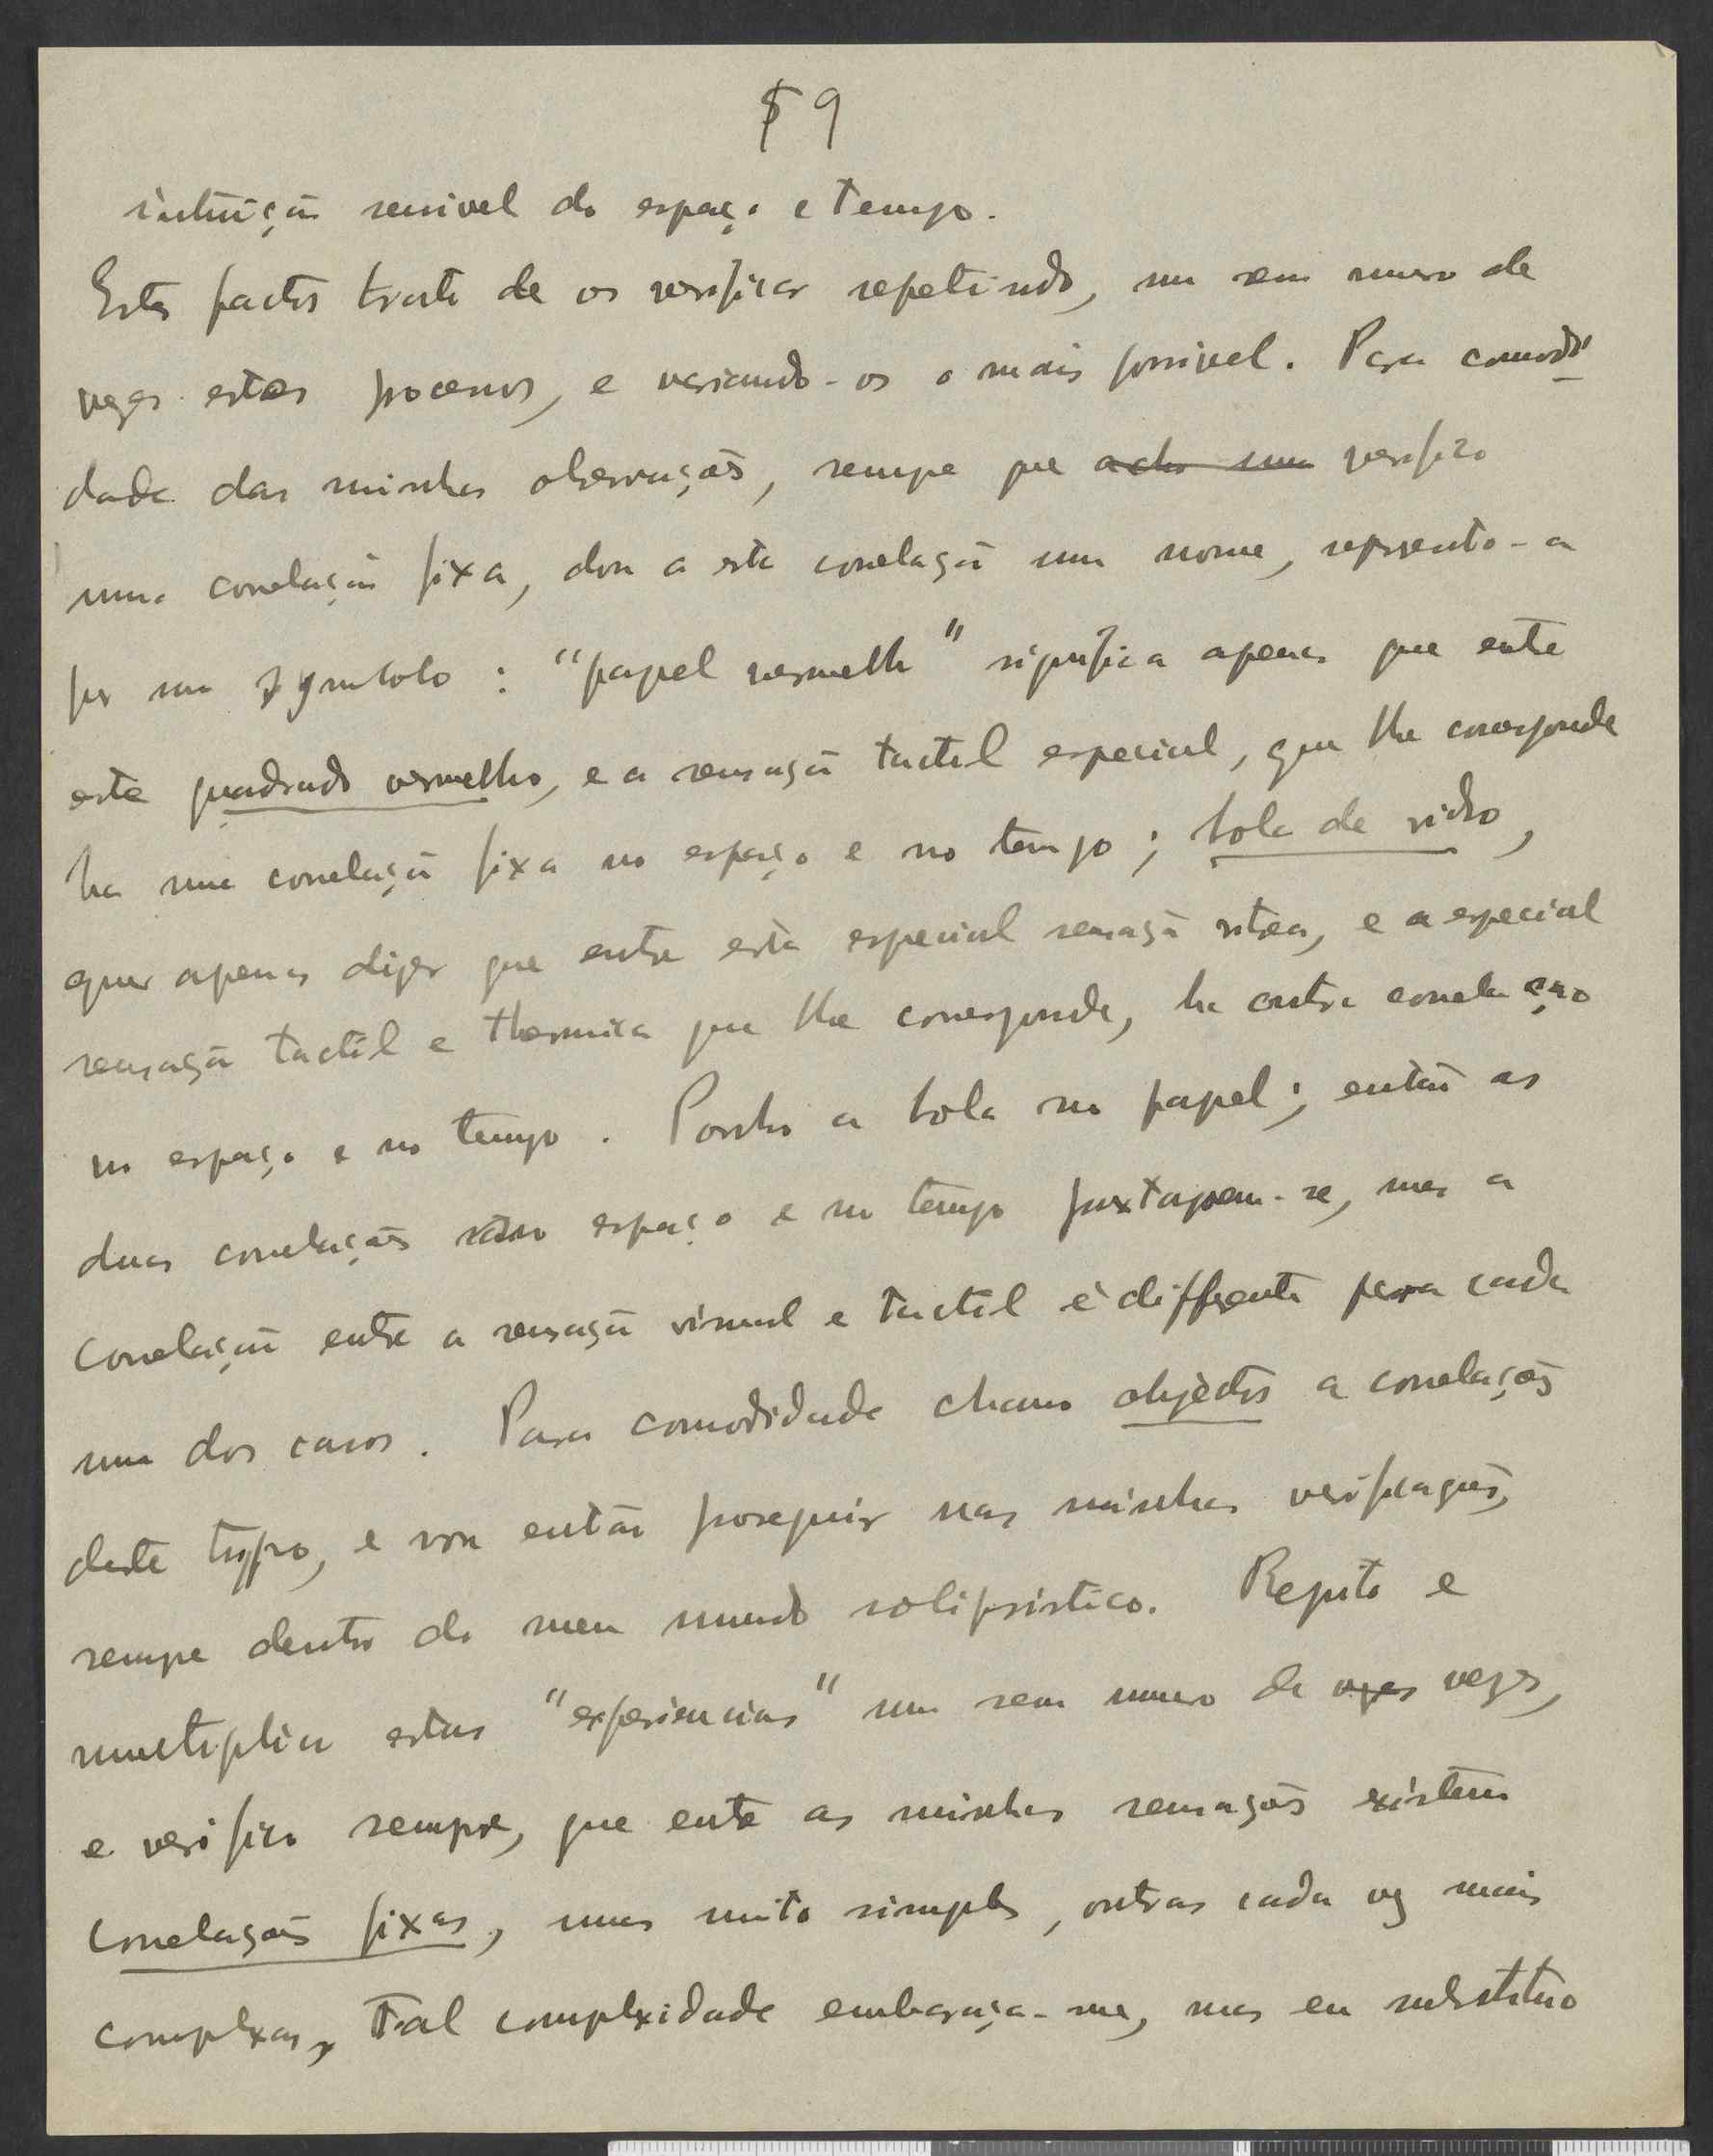 § 9
intuição sensivel do espaço e tempo.
Estes factos trato de os verificar repetindo, um sem numero de
vezes estes processos, e variando-os o mais possivel. Para comodi-
dade das minhas observações, sempre que acho uma verifico
uma correlação fixa, dou a esta correlação um nome, represento-a
por um symbolo : "papel vermelho" significa apenas que entre
este quadrado vermelho, e a sensação tactil especial, que lhe corresponde
ha uma correlação fixa no espaço e no tempo ; bola de vidro,
quer apenas dizer que entre esta especial sensação vitrea, e a especial
sensação tactil e thermica que lhe corresponde, ha outra correlação
no espaço e no tempo . Ponho a bola no papel ; então as
duas correlações no espaço e no tempo juxtapoem-se, mas a
correlação entre a sensação visual e tactil é differente para cada
um dos casos . Para comodidade chamo objectos a correlações
deste typo, e vou então proseguir nas minhas verificações,
sempre dentro do meu mundo solipsistico. Repito e
multiplico estas "experiencias" um sem numero de vezes vezes,
e verifico sempre, que entre as minhas sensações existem
correlações fixas, umas muito simples, outras cada vez mais
complexas, Tal complexidade embaraça-me, mas eu substituo